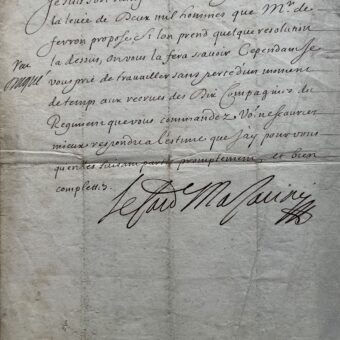 la levée de Deux mil hommes que Mr. de
ferron propose. Si lon prend quelque resolution
la dessus, on vous la fera scavoir. Cependant Je
vous prie de travailler sans perdre un moment
de temps, aux recrues des Dix Compagnies du
Regiment que vous commandez. Vo9 ne scauriez
mieux respondre a l'estime que J'ay pour vous
qu'en les faisant partir promptement, et bien
complettes.
Le Card. Mazarini